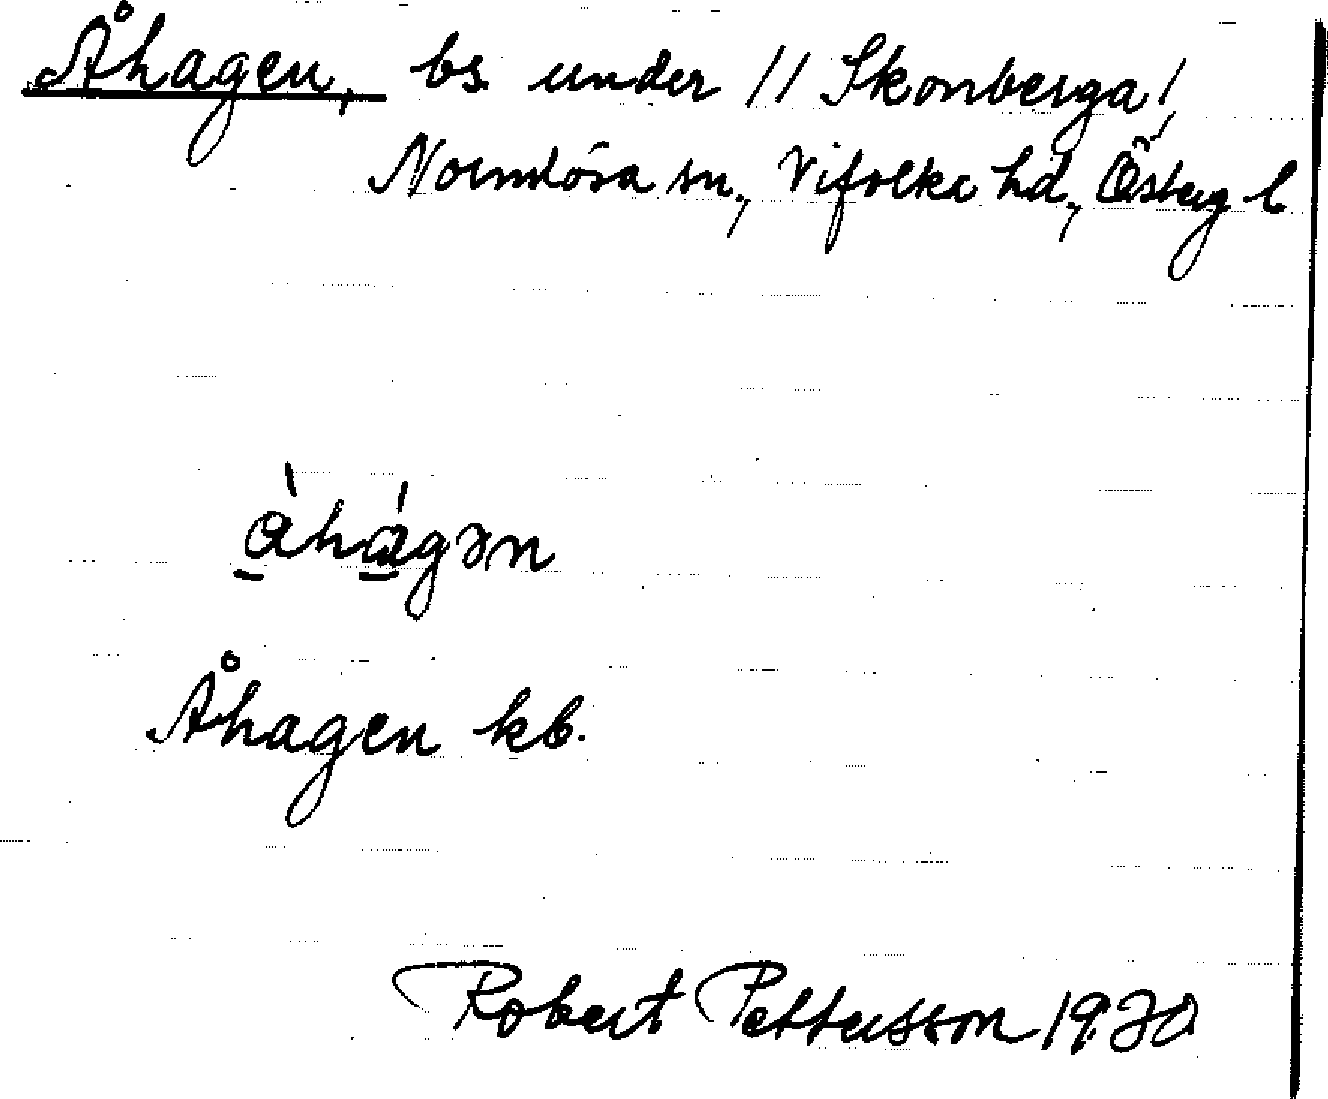 Åhagen, bs under // Skonberga/
Normlösa sn., Vifolka hd., Östberg l
åhágən
Åhagen kb.
Robert Pettersson 1930